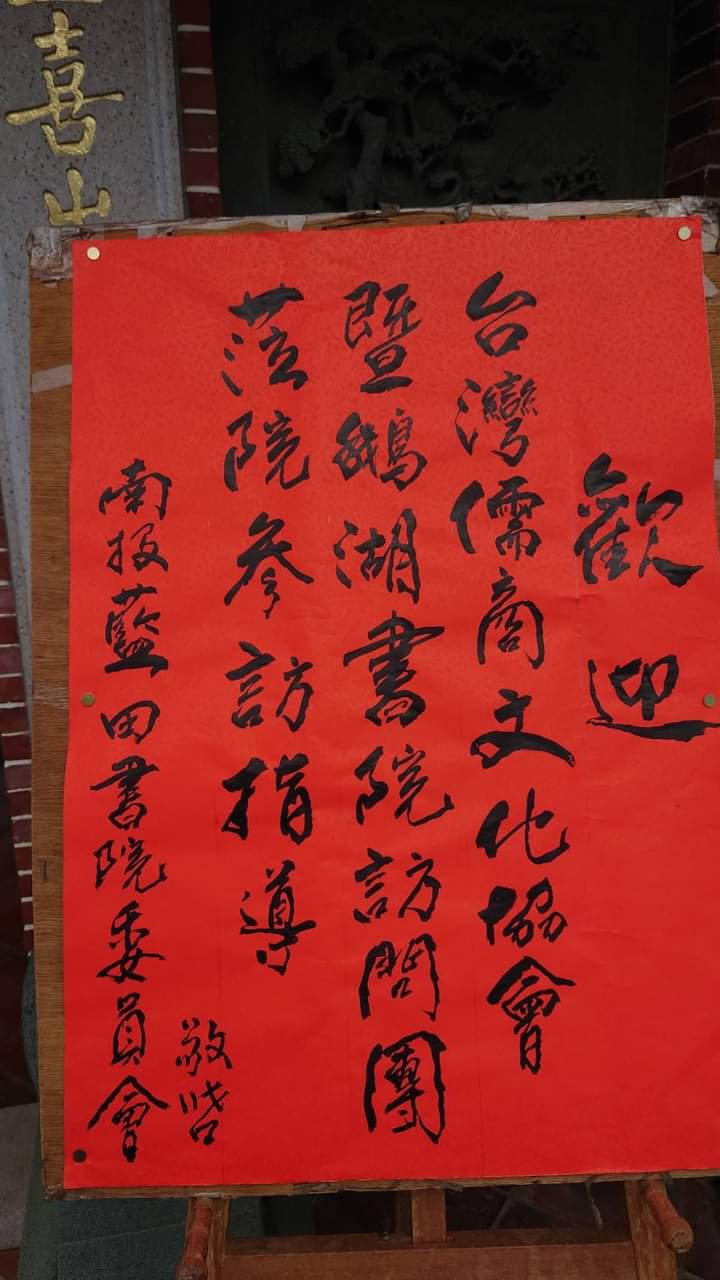 歡迎
台灣儒商文化協會
暨鵝湖書院訪問團
蒞院參訪指導
南投藍田書院委員會
敬啓
喜山